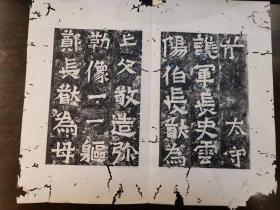 太守
護軍長史雲
陽伯長猷為
亡父敬造弥
勒像一一軀
鄭長猷為母